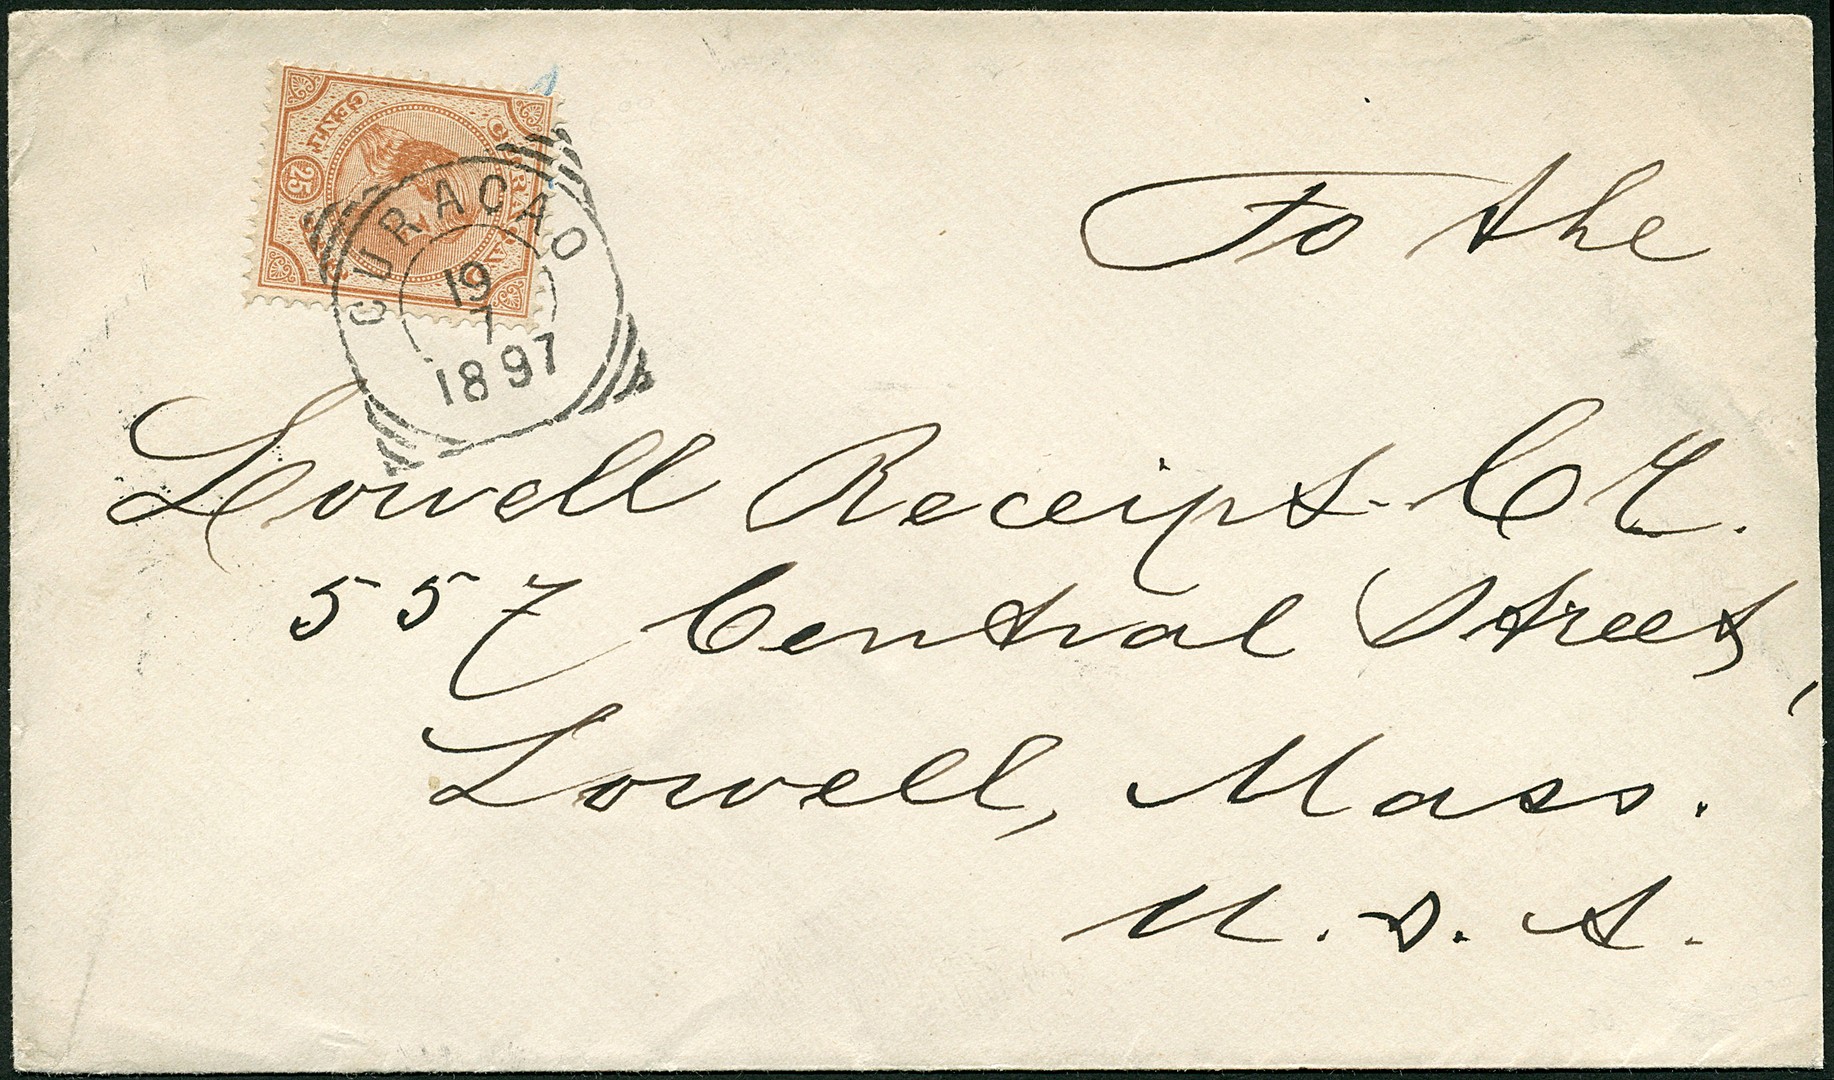 CURAÇAO
CENT
25
CURACAO
19
7
1897
To the
Lowell Receipt Co.
557 Central Street,
Lowell, Mass.
U. S. A.